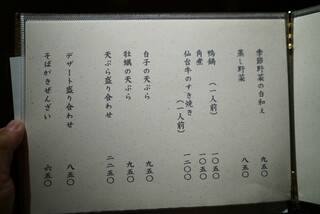 季節野菜の白和え 九五〇
蒸し野菜 八五〇
鴨鍋 (一人前) 一〇五〇
角煮 一〇五〇
仙台牛のすき焼き (一人前) 一二〇〇
白子の天ぷら 九五〇
牡蠣の天ぷら 九五〇
天ぷら盛り合わせ 二二五〇
デザート盛り合わせ 八五〇
そばがきぜんざい 六五〇